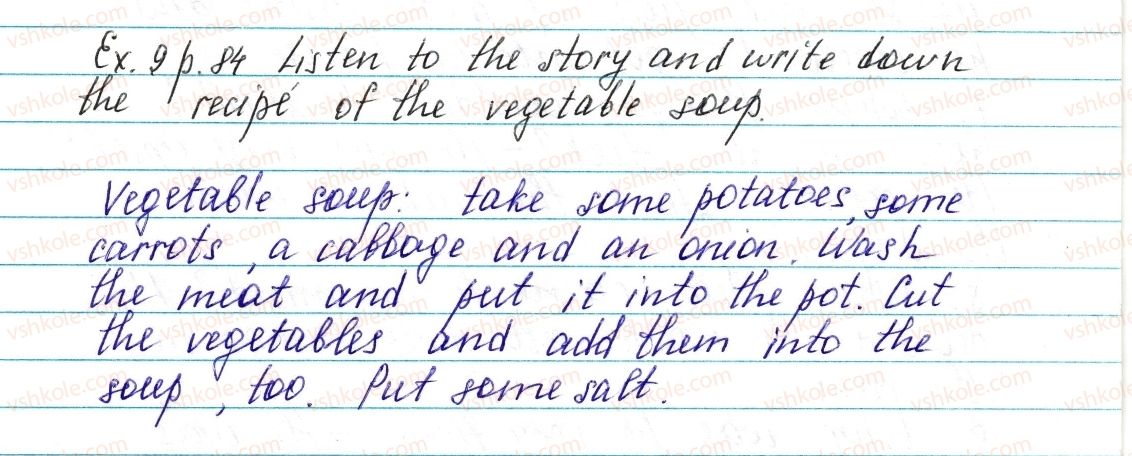 Ex. 9 p. 84 Listen to the story and write down
the recipé of the vegetable soup.
Vegetable soup: take some potatoes, some
carrots, a cabbage and an onion. Wash
the meat and put it into the pot. Cut
the vegetables and add them into the
soup, too. Put some salt.